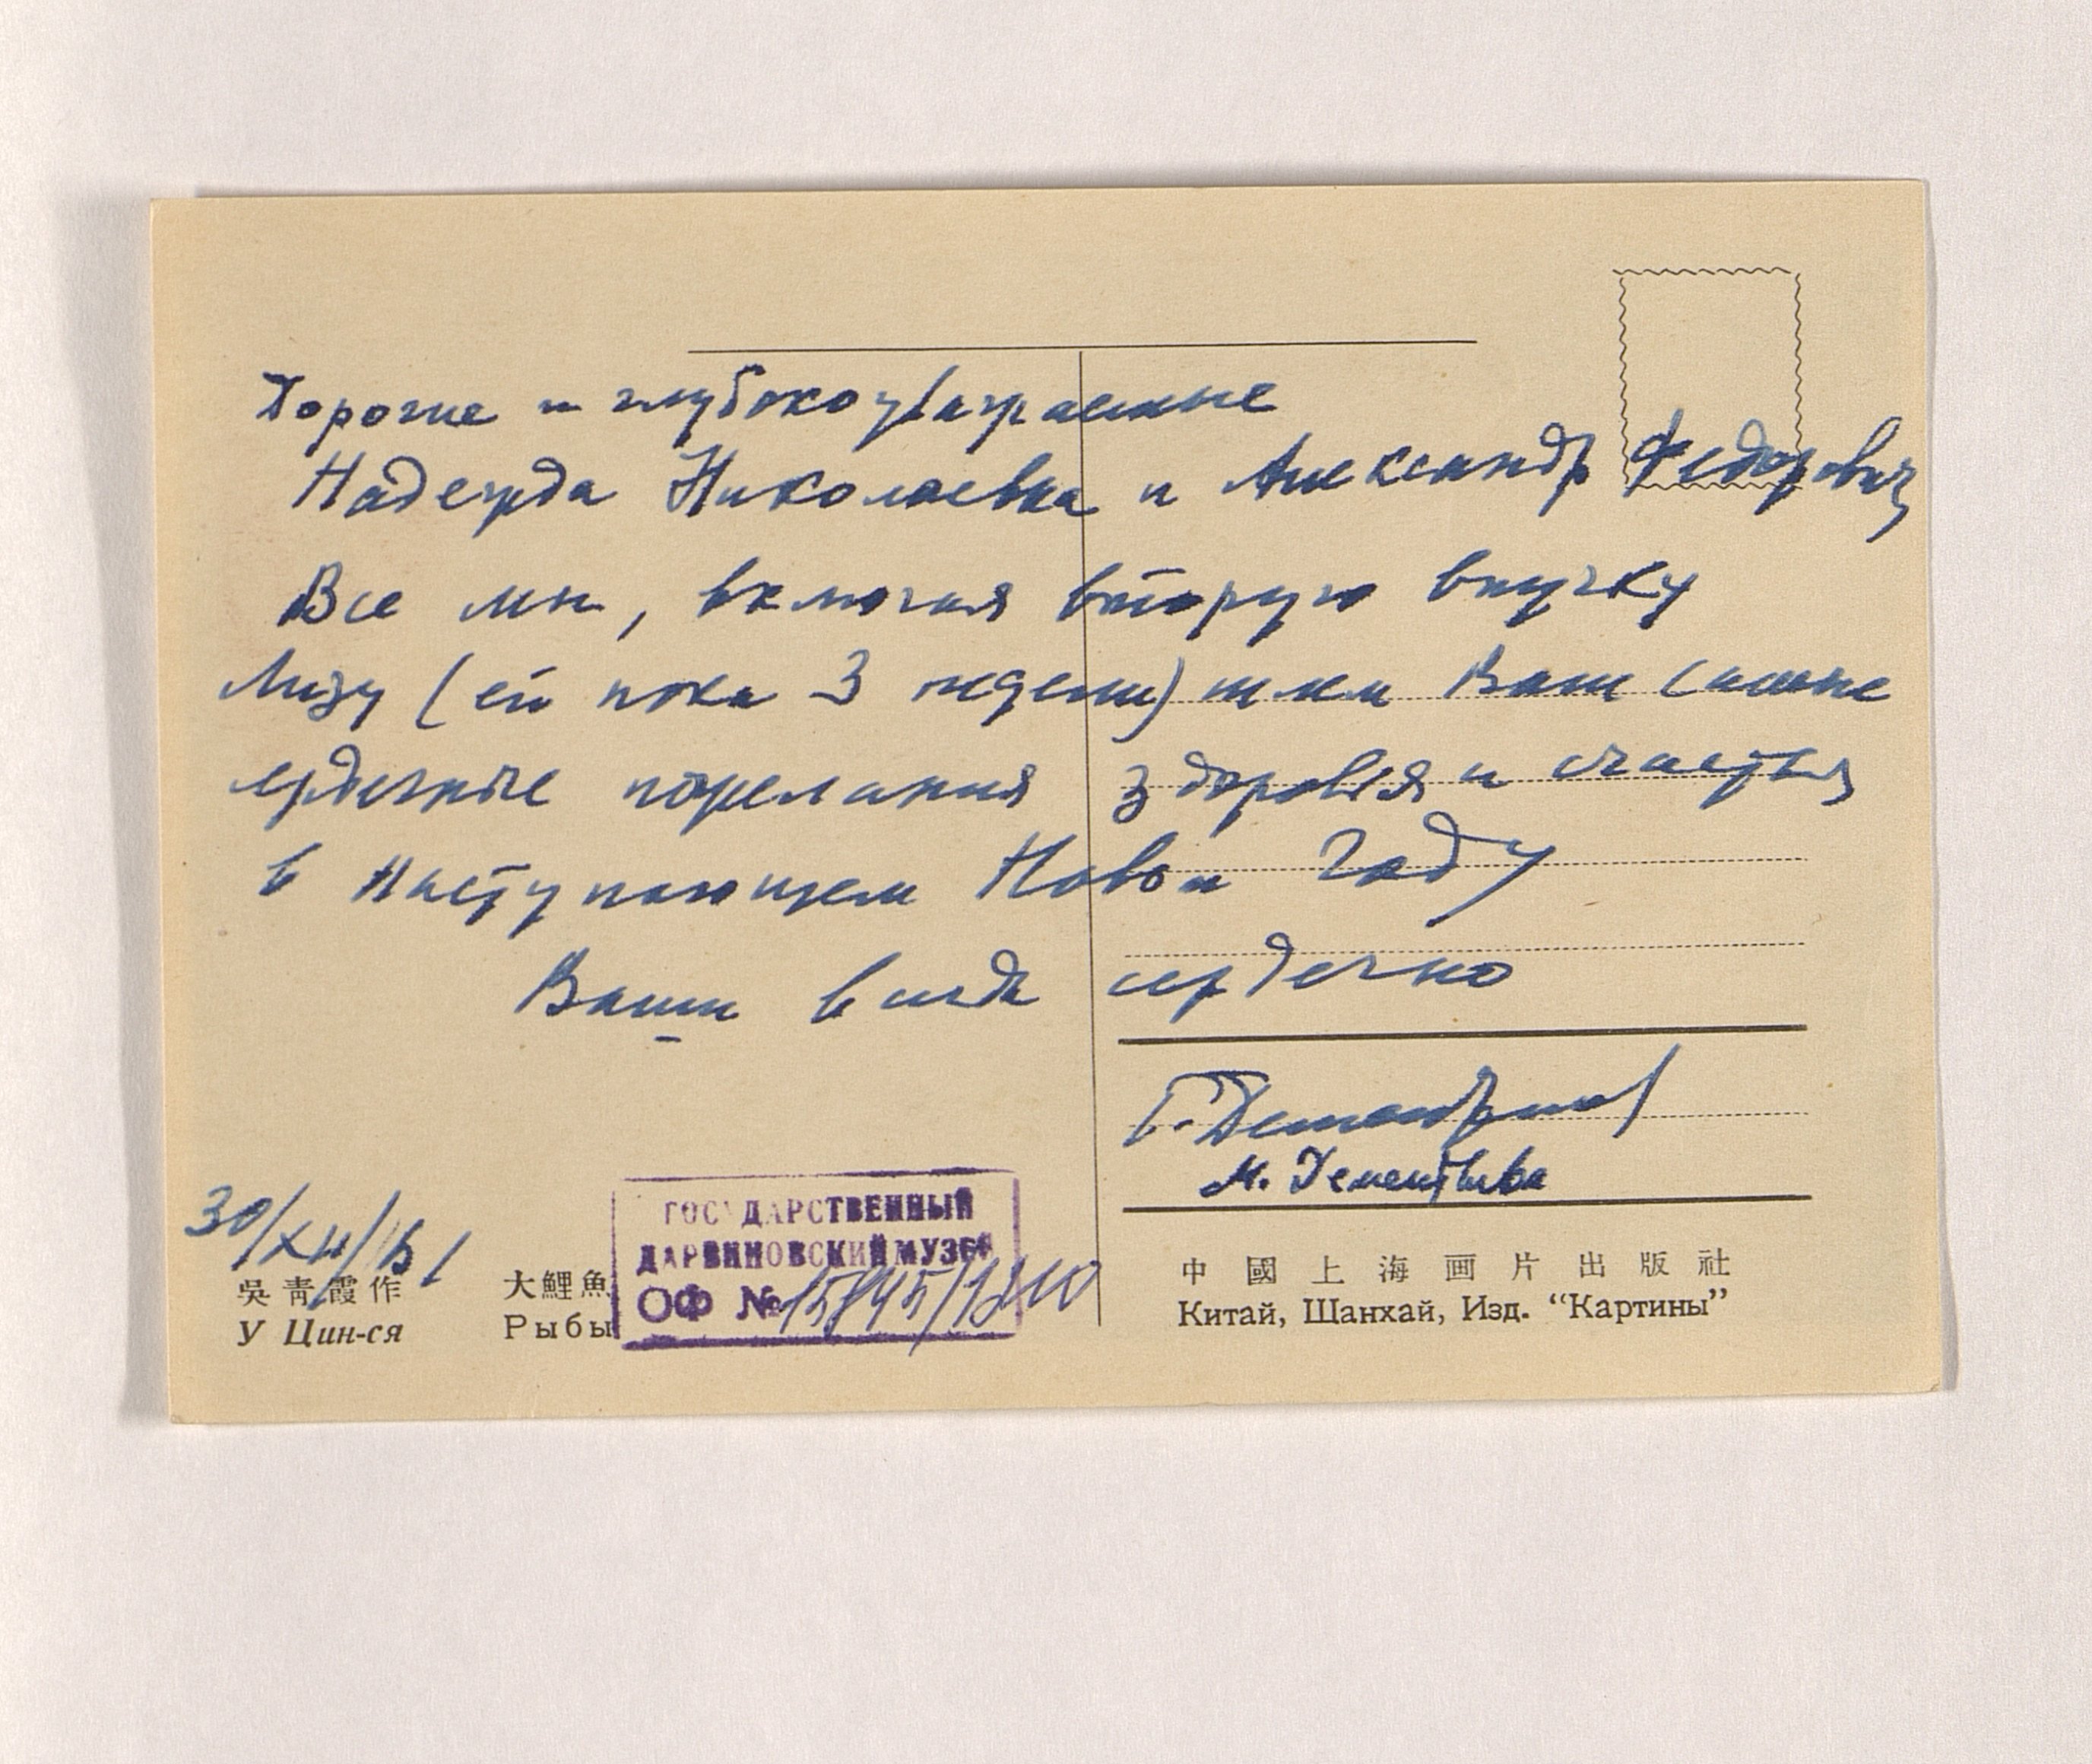 Дорогие и глубокоуважаемые
Надежда Николаевна и Александр Федорович
Все мы, включая вторую внучку
Лизу (ей пока 3 недели) шлем Вам самые
сердечные пожелания здоровья и счастья
в наступающем Новом Году
Ваши всегда сердечно
Г. Дементьев
М. Дементьева
30/XII/
ГОСУДАРСТВЕННЫЙ
ДАРВИНОВСКИЙ МУЗЕЙ
ОФ №
吳青霞作 大鯉魚
У Цин-ся Рыбы
中國上海画片出版社
Китай, Шанхай, Изд. “Картины”